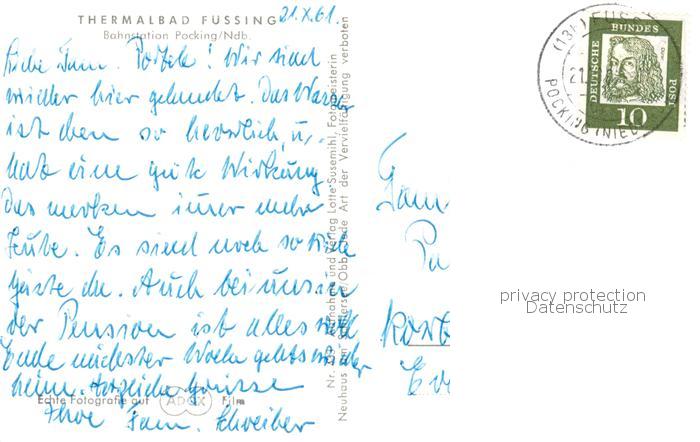 THERMALBAD FÜSSING 21.X.61.
Bahnstation Pocking/Ndb.
Liebe Fam. ! Wir sind
wieder hier gelandet. Das Wasser
ist eben so herrlich u.
hat eine gute Wirkung
das merken immer mehr
Leute. Es sind noch so viele
Gäste da. Auch bei uns in
der Pension ist alles voll
Ende nächster Woche gehts wieder
heim. Herzliche Grüsse
Ihre Fam. Schreiber
Echte Fotografie auf ADOX Film
Nr. Aufnahme und Verlag Lotte Susemihl, Fotomeisterin
Neuhaus am Schliersee/Obb. Jede Art der Vervielfältigung verboten
DEUTSCHE BUNDES POST
10
(13b) FÜSS
21.
POCKING (NIED
Fam
Kont
privacy protection
Datenschutz